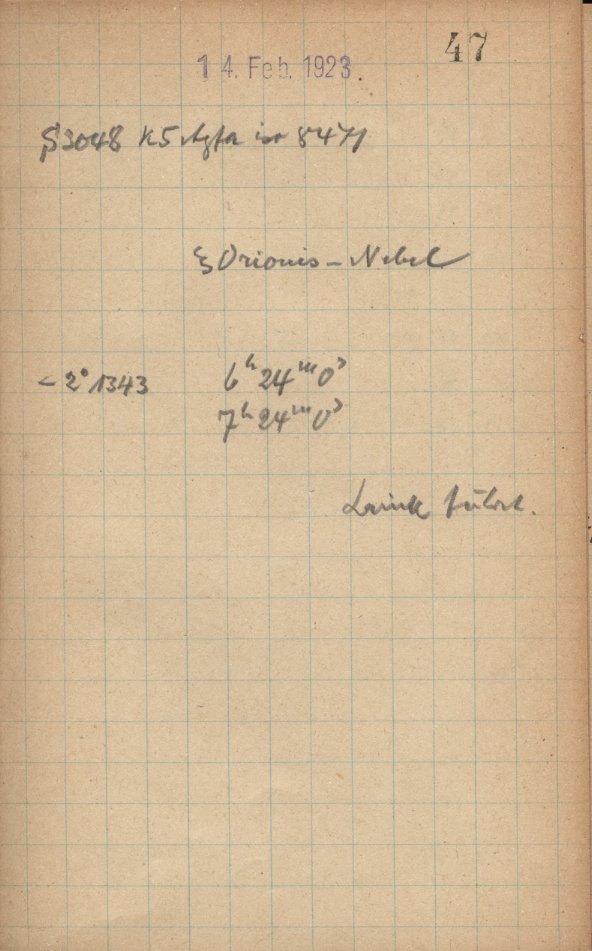 47
14. Feb. 1923.
3048 K5 Agfa iso 8471
ξ Orionis – Nebel
-2° 1343 6ʰ 24ᵐ 0ˢ
7ʰ 24ᵐ 0ˢ